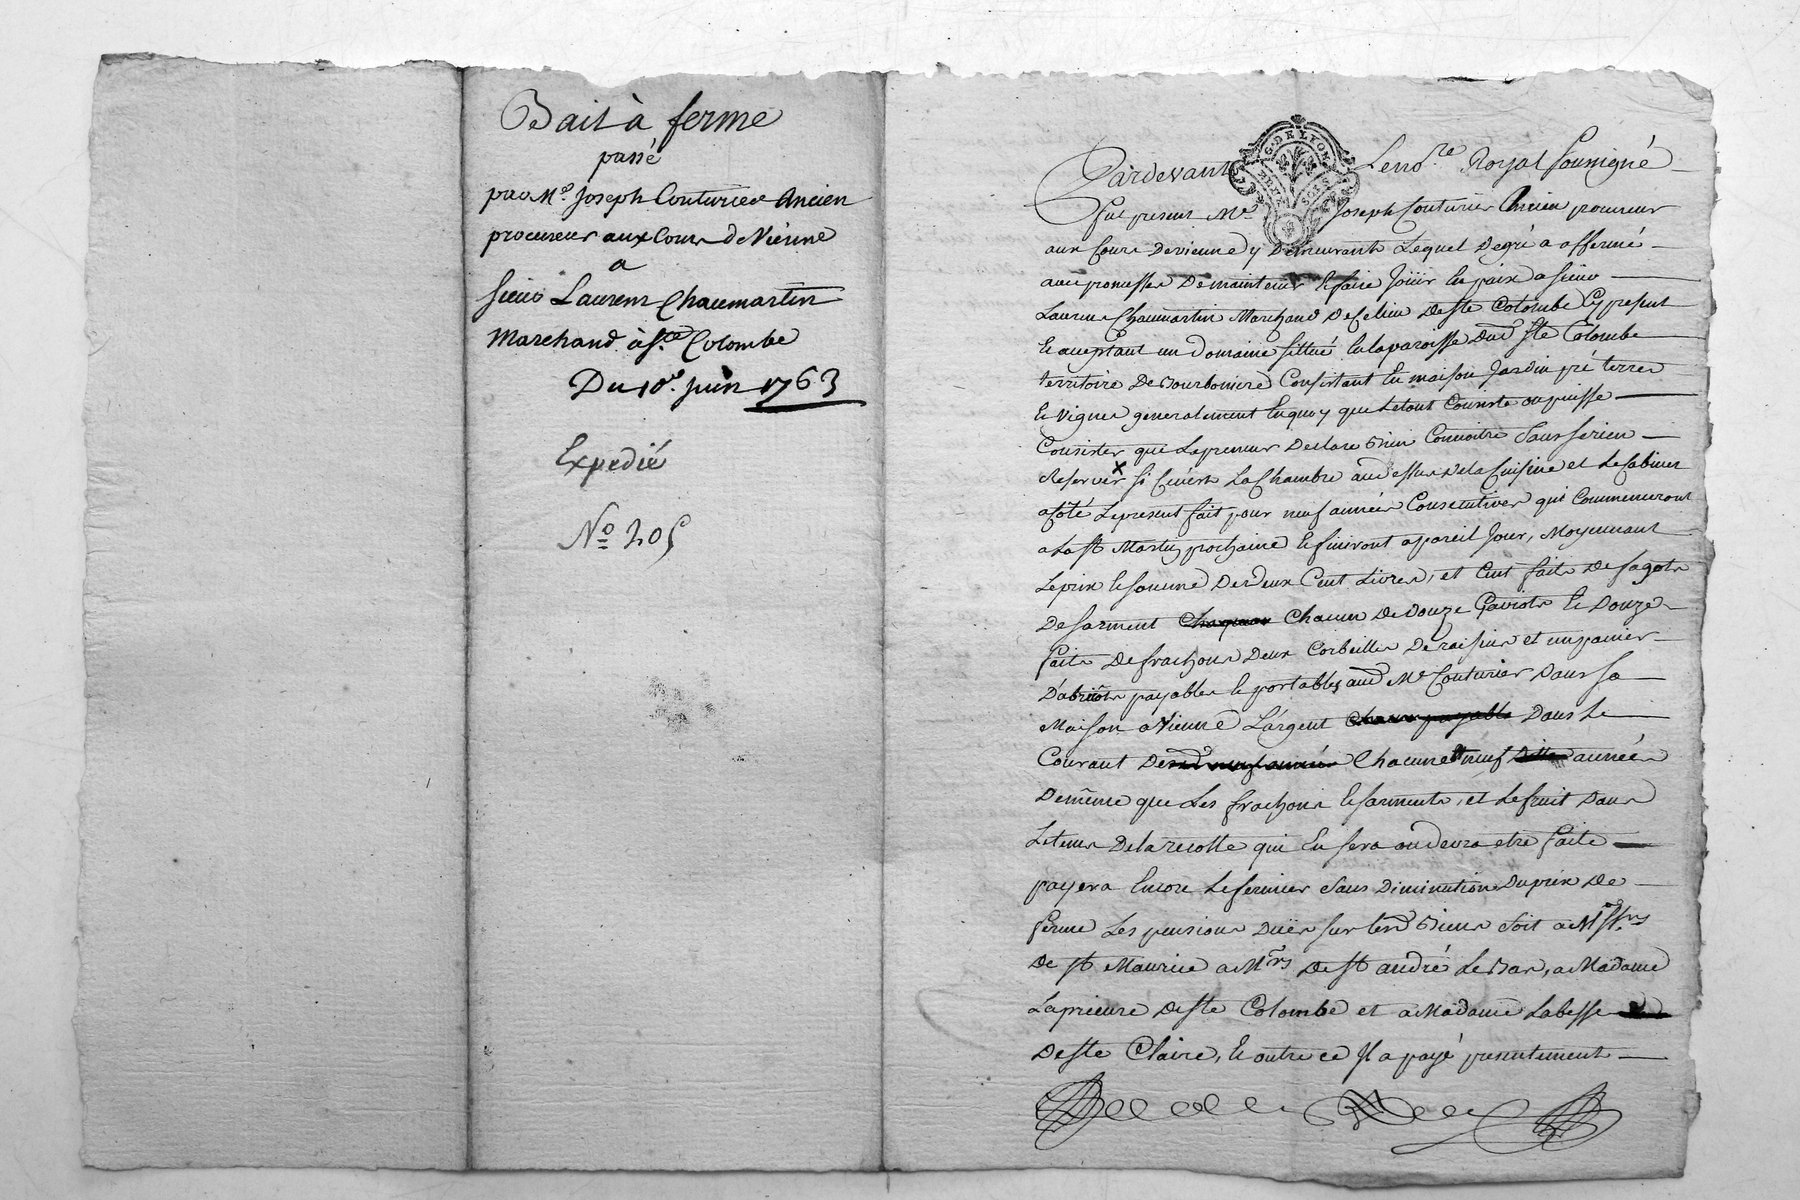 Bail à ferme
passé
par Me. Joseph Couturier Ancien
procureur aux Cours de Vienne
a
sieur Laurens Chaumartin
Marchand à Ste Colombe
Du 10e. juin 1763
Expedié
No 205
G. DE LYON
Pardevant Le nore Royal soussigné
fut present Me Joseph Couturier Ancien procureur
aux Cours de vienne y demeurant Lequel de gré a affermé
avec promesse de maintenir et faire jouir en paix a sieur
Laurens Chaumartin Marchand de ste Colombe Cy present
et acceptant un domaine sittué en la paroisse dud ste Colombe
territoire de Bourboniere Consistant en maison jardin pré terres
et vignes generalement en quoy que le tout Consiste ou puisse
Consister que le preneur declare bien Connoitre sans se rien
Reserver si ce n'est La Chambre au dessus de la Cuisine et le Cabinet
a Coté Le present fait pour neuf années Consecutives qui Commenceront
a La st Martin prochaine et finiront a pareil jour, Moyennant
Le prix et somme de deux Cent Livres, et Cent faits de fagots
de sarment Chacun de douze Gaviots et douze
faits de frachons deux Corbeilles de raisins et un panier
d'abricots payables et portables aud Me Couturier dans sa
Maison a Vienne L'argent dans le
Courant de Chacune neuf années
de même que Les frachons et sarments, et le fruit dans
Le tems de la recolte qui en sera ou devra etre faite
payera encore Le fermier sans diminution du prix de
ferme Les pensions dües sur lesd Biens soit a Mssrs
de st Maurice a Mrs de st andré Le Bas, a Madame
La prieure de ste Colombe et a Madame L'abesse
de ste Claire, et outre ce Il a payé presentement